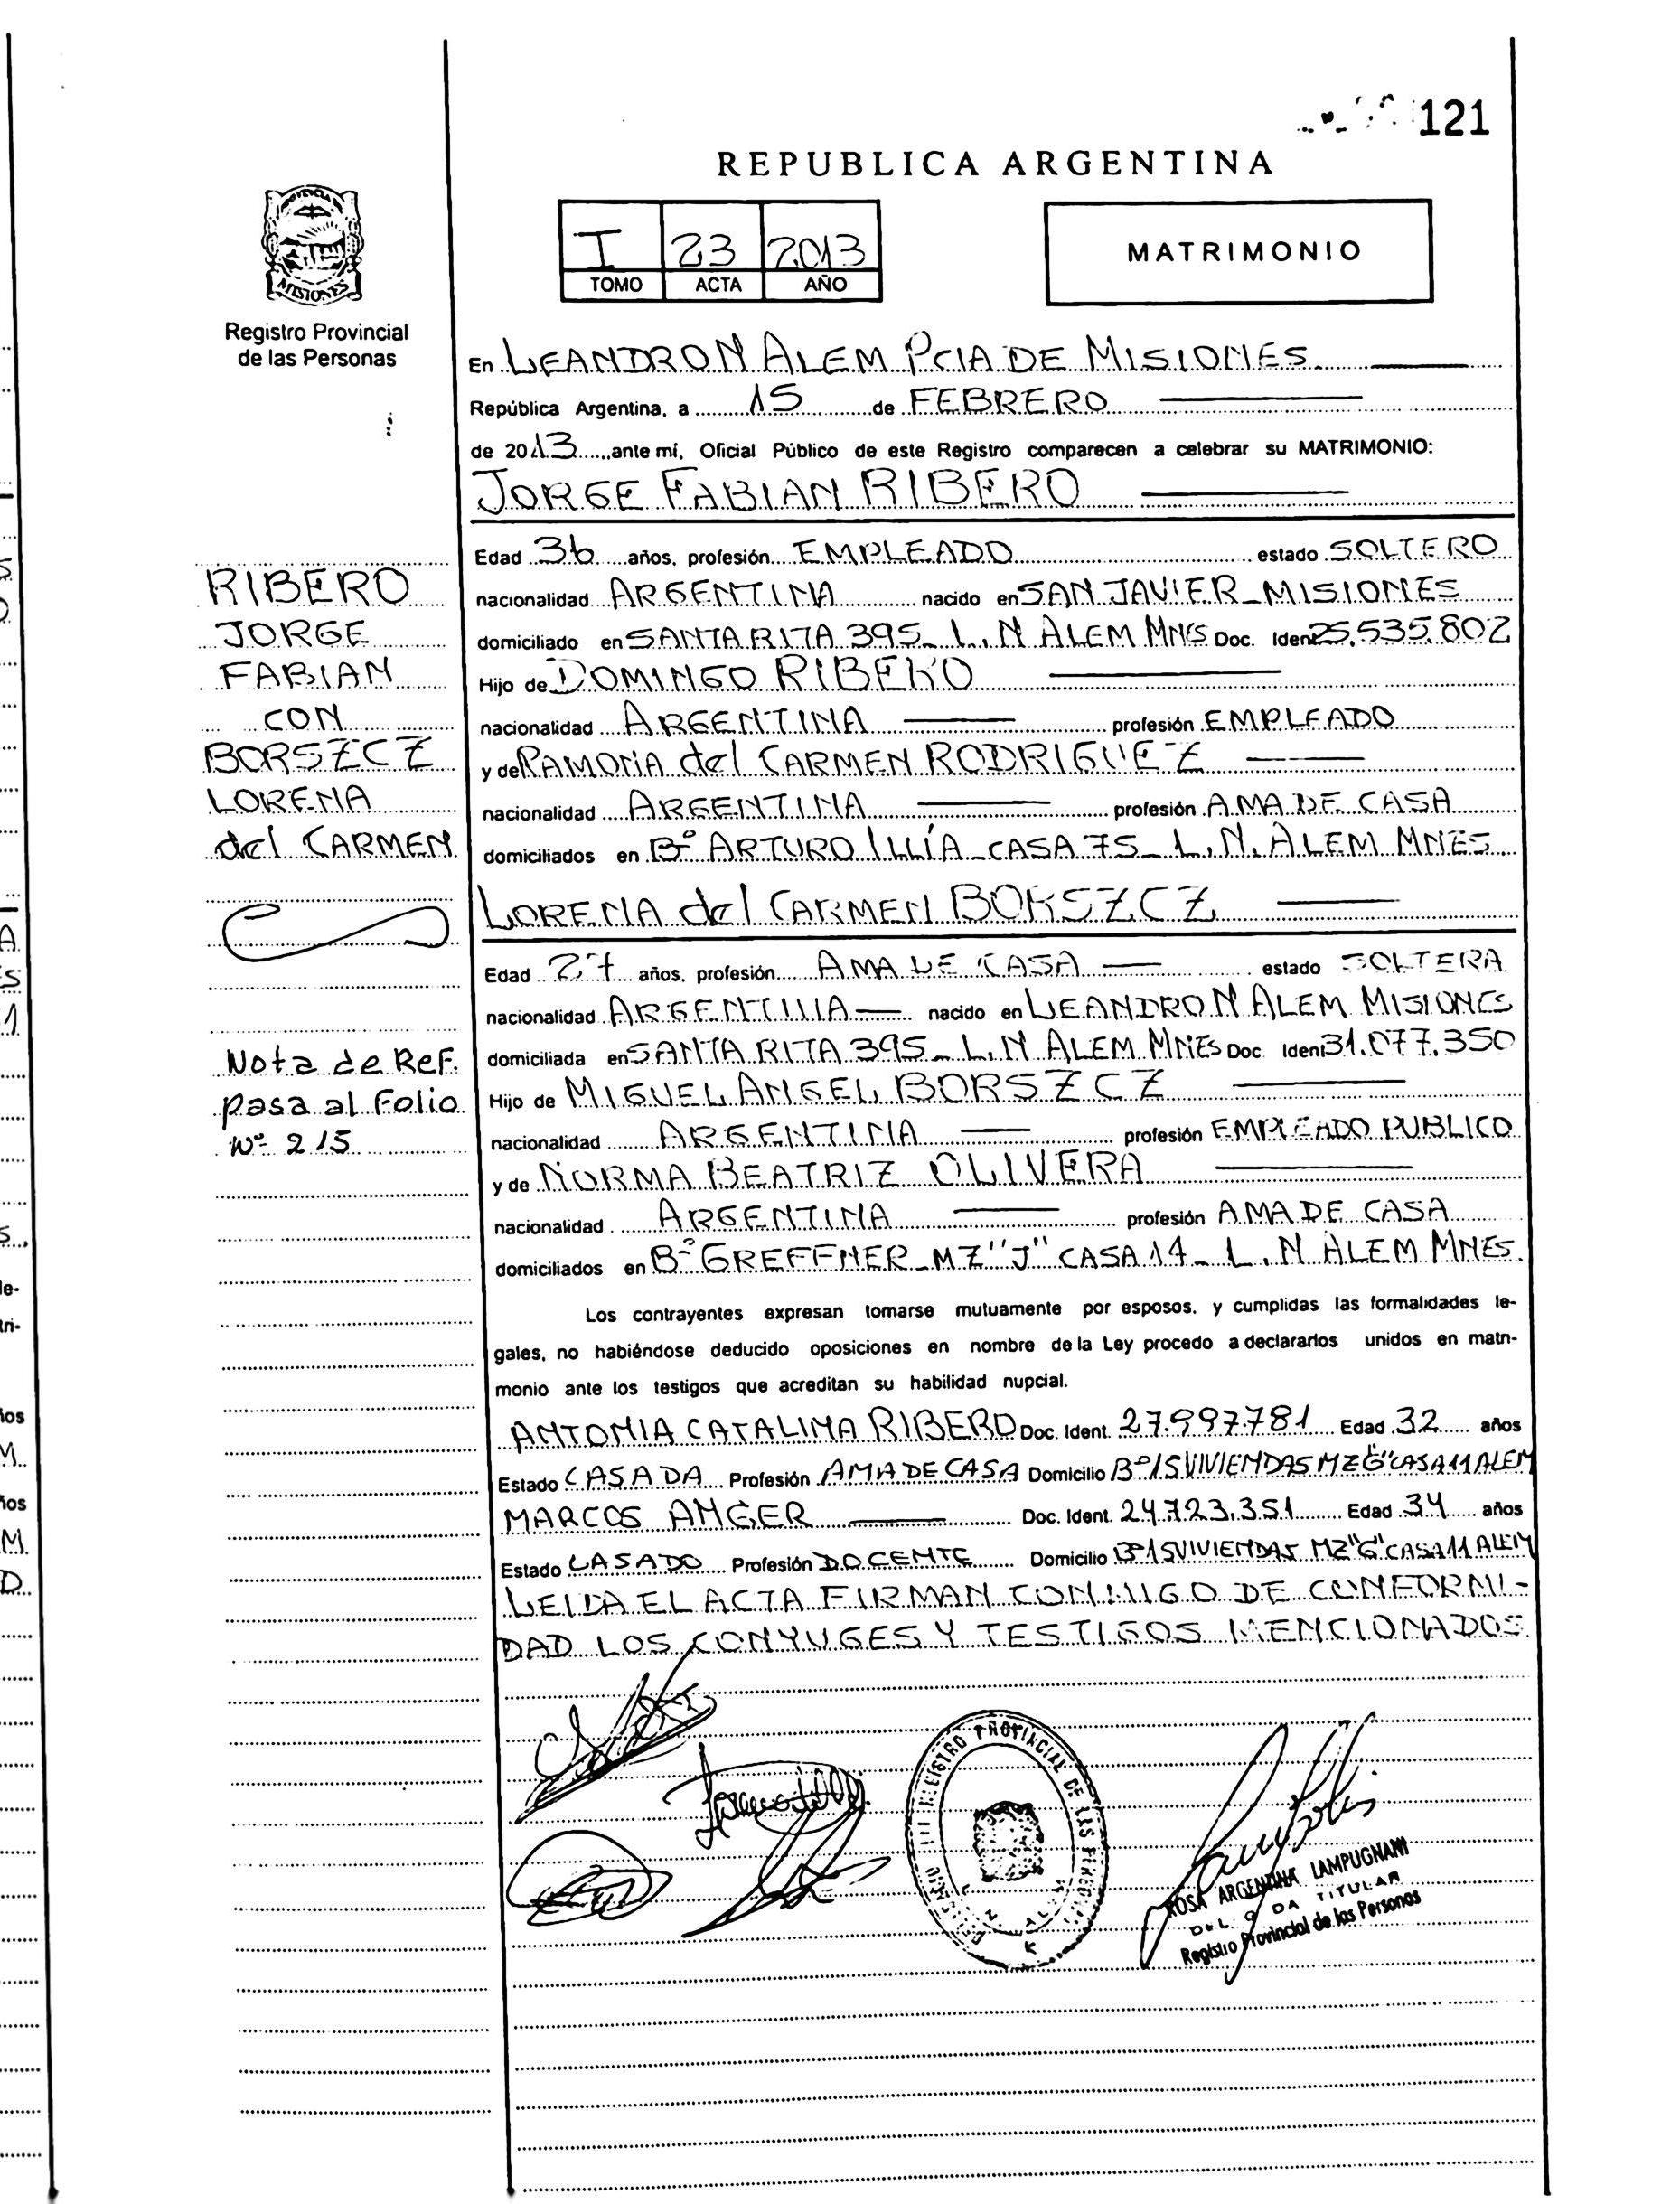 121
REPUBLICA ARGENTINA
I 23 2013
TOMO ACTA AÑO
MATRIMONIO
MISIONES
Registro Provincial
de las Personas
En LEANDRO N ALEM PCIA DE MISIONES
República Argentina, a 15 de FEBRERO
de 2013 ante mí, Oficial Público de este Registro comparecen a celebrar su MATRIMONIO:
JORGE FABIAN RIBERO
Edad 36 años, profesión EMPLEADO estado SOLTERO
nacionalidad ARGENTINA nacido en SAN JAVIER_MISIONES
domiciliado en SANTA RITA 395_ L.N ALEM MNES Doc. Iden 25.535.802
Hijo de DOMINGO RIBERO
nacionalidad ARGENTINA profesión EMPLEADO
y de RAMONA del CARMEN RODRIGUEZ
nacionalidad ARGENTINA profesión AMA DE CASA
domiciliados en Bº ARTURO ILLÍA_CASA 75_ L.N. ALEM MNES
LORENA del CARMEN BORSZCZ
Edad 27 años, profesión AMA DE CASA estado SOLTERA
nacionalidad ARGENTINA nacido en LEANDRO N ALEM MISIONES
domiciliada en SANTA RITA 395_ L.N ALEM MNES Doc Iden 31.077.350
Hijo de MIGUEL ANGEL BORSZCZ
nacionalidad ARGENTINA profesión EMPLEADO PUBLICO
y de NORMA BEATRIZ OLIVERA
nacionalidad ARGENTINA profesión AMA DE CASA
domiciliados en Bº GREFFNER_MZ "J" CASA 14_ L.N ALEM MNES.
Los contrayentes expresan tomarse mutuamente por esposos, y cumplidas las formalidades le-
gales, no habiéndose deducido oposiciones en nombre de la Ley procedo a declararlos unidos en matri-
monio ante los testigos que acreditan su habilidad nupcial.
ANTONIA CATALINA RIBERO Doc. Ident. 27.997.781 Edad 32 años
Estado CASADA Profesión AMA DE CASA Domicilio Bº 15 VIVIENDAS MZ "G" CASA 11 ALEM
MARCOS ANGER Doc. Ident. 24.723.351 Edad 34 años
Estado CASADO Profesión DOCENTE Domicilio Bº 15 VIVIENDAS MZ "G" CASA 11 ALEM
LEIDA EL ACTA FIRMAN CONMIGO DE CONFORMI-
DAD LOS CONYUGES Y TESTIGOS MENCIONADOS
RIBERO
JORGE
FABIAN
CON
BORSZCZ
LORENA
del CARMEN
Nota de Ref.
pasa al Folio
Nº 215
REGISTRO PROVINCIAL DE LAS
ROSA ARGENTINA LAMPUGNANI
TITULAR
Registro Provincial de las Personas